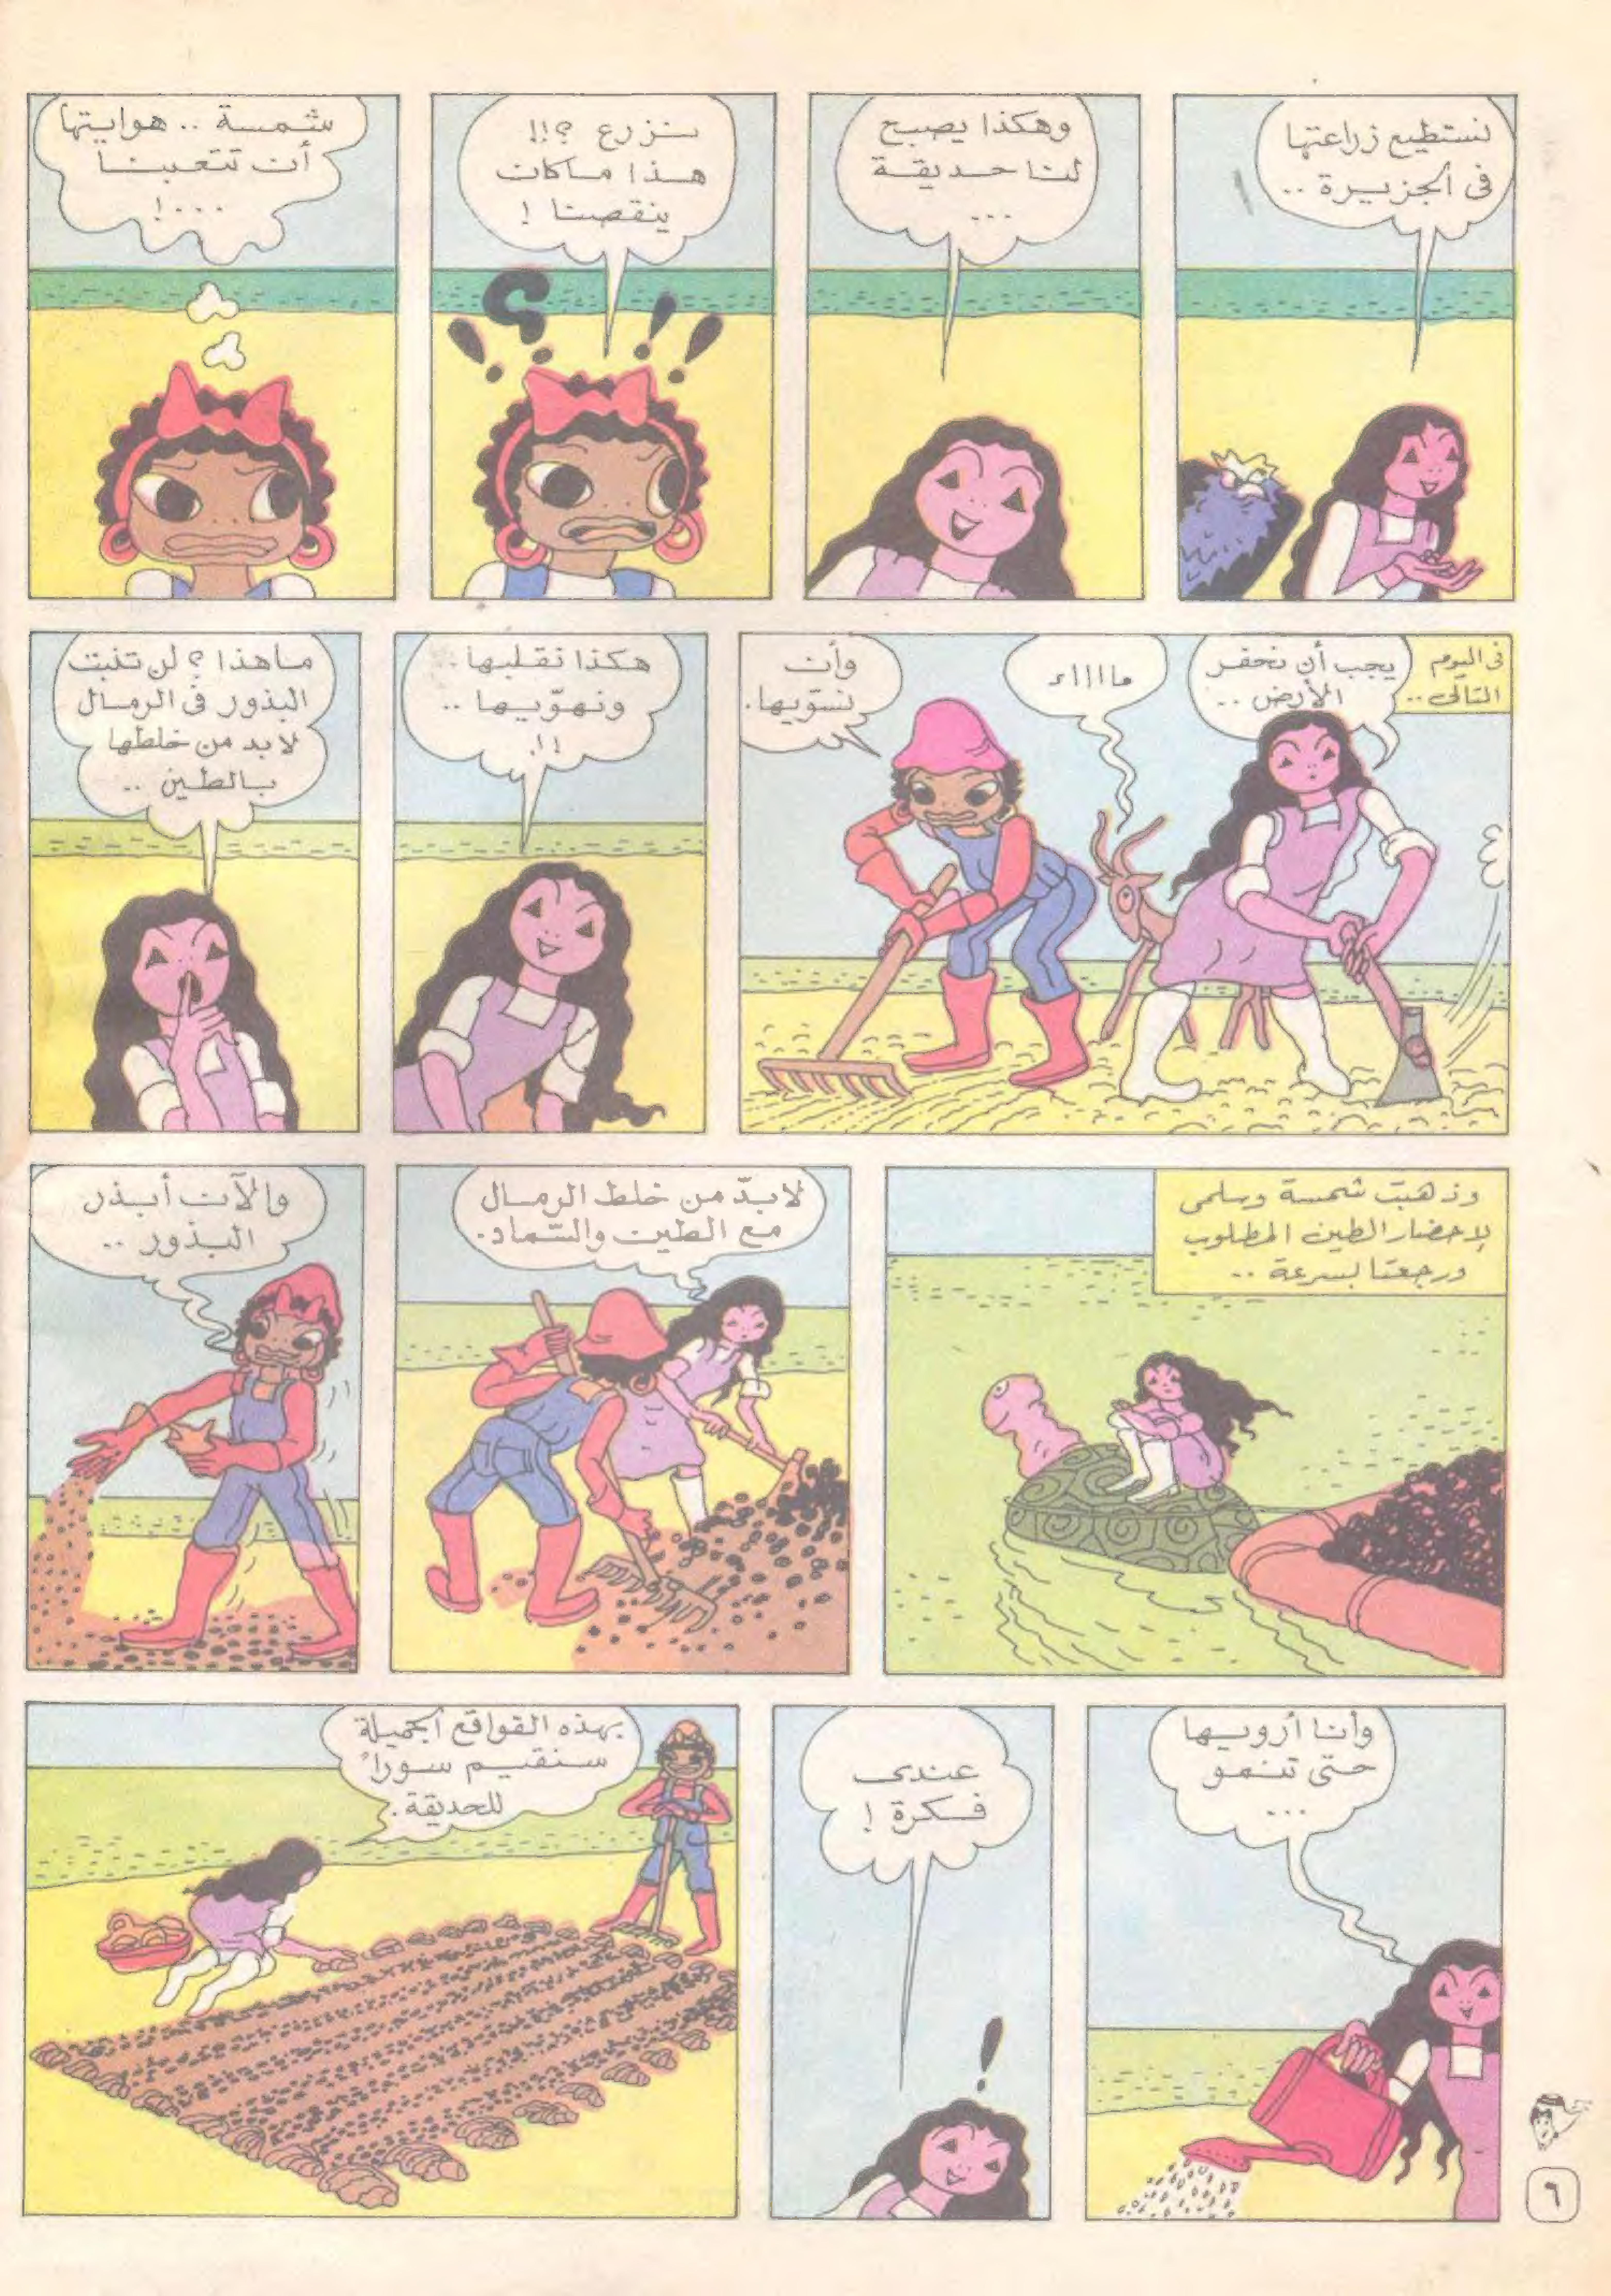 نستطيع زراعتها
فى الجزيرة ..
وهكذا يصبح
لنا حديقة
...
نزرع ؟!!
هذا ماكان
ينقصنا !
شمسة .. هوايتها
أن تتعبنا
...!
فى اليوم
التالى ..
يجب أن نحفر
الأرض ..
ماااااء
وأن
نسوّيها.
هكذا نقلبها .
ونهوّيها ..
!!.
ماهذا ؟ لن تنبت
البذور فى الرمال
لابد من خلطها
بالطين ..
وذهبت شمسة وسلمى
لإحضار الطين المطلوب
ورجعتا بسرعة ..
لابدّ من خلط الرمال
مع الطين والسّماد.
والآن أبذر
البذور ..
وأنا أرويها
حتى تنمو
...
عندى
فكرة !
بهذه القواقع الجميلة
سنقيم سوراً
للحديقة.
٦